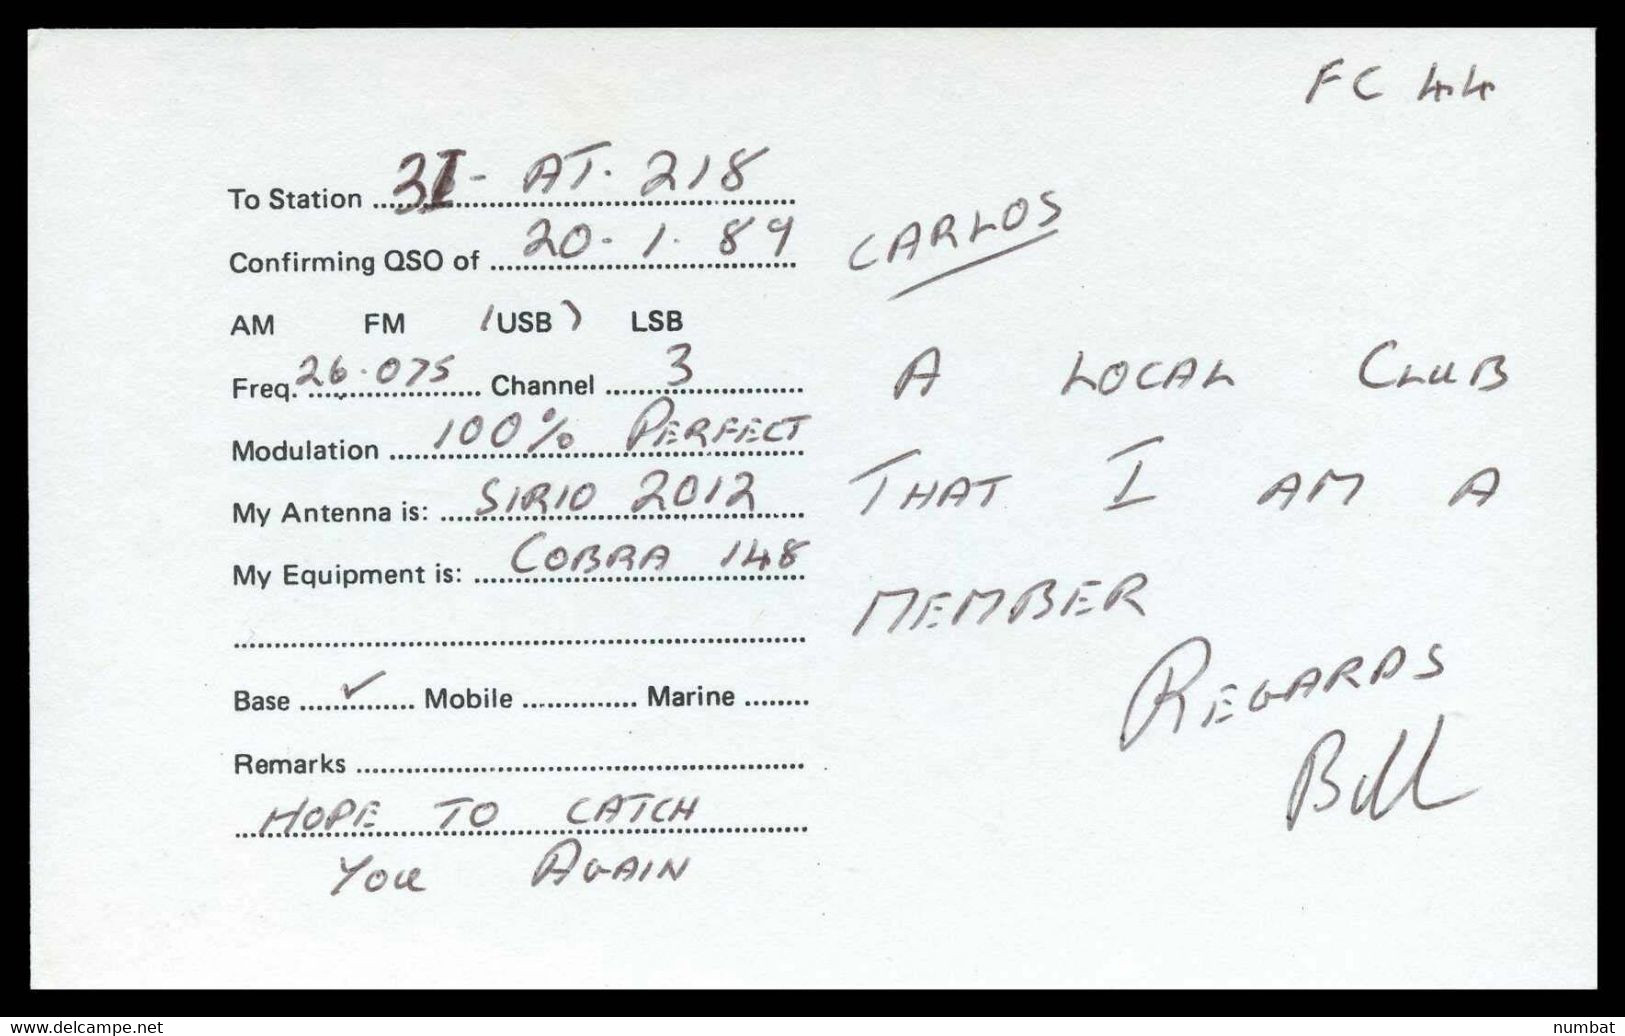 FC 44
To Station 31 - AT. 218
Confirming QSO of 20. 1. 89
AM FM (USB) LSB
Freq. 26.075 Channel 3
Modulation 100% PERFECT
My Antenna is: SIRIO 2012
My Equipment is: COBRA 148
Base ✓ Mobile Marine
Remarks
HOPE TO CATCH
YOU AGAIN
CARLOS
A LOCAL CLUB
THAT I AM A
MEMBER
REGARDS
Bill
www.delcampe.net
numbat